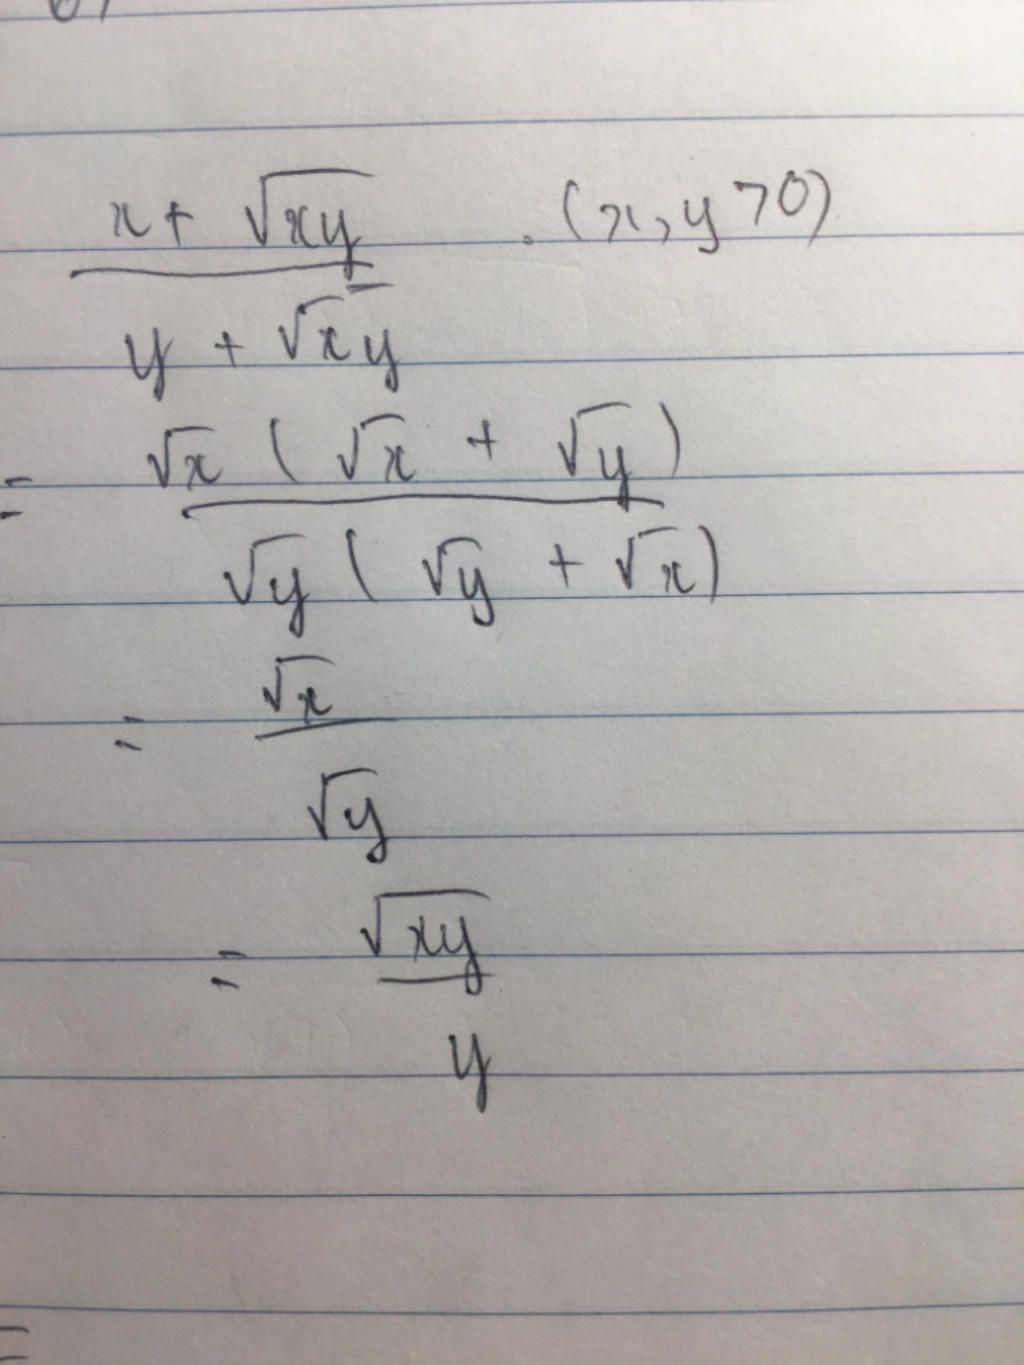 x + √xy . (x, y > 0)
y + √xy
= √x ( √x + √y )
√y ( √y + √x )
= √x
√y
= √xy
y
=